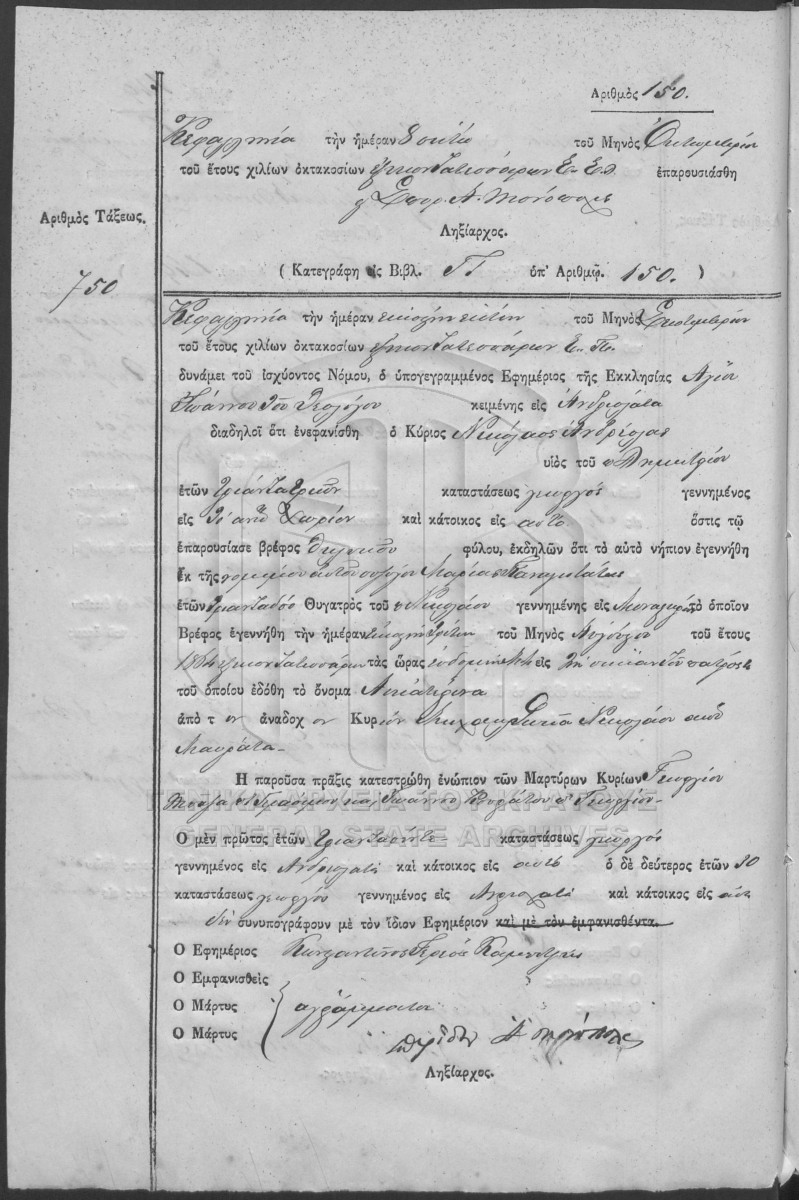 Ἀριθμὸς 150.
Κεφαλληνία τὴν ἡμέραν 8 ὀκτώ τοῦ Μηνὸς Ὀκτωμβρίου
τοῦ ἔτους χιλίων ὀκτακοσίων ἑξηκοντατεσσάρων Ε. Π. ἐπαρουσιάσθη
Σπυρ. Α.
Ληξίαρχος.
Ἀριθμὸς Τάξεως.
( Κατεγράφη εἰς Βιβλ. ΓΓ ὑπ' Ἀριθμῷ. 150. )
750
Κεφαλληνία τὴν ἡμέραν τοῦ Μηνὸς Σεπτεμβρίου
τοῦ ἔτους χιλίων ὀκτακοσίων ἑξηκοντατεσσάρων Ε. Π.
δυνάμει τοῦ ἰσχύοντος Νόμου, ὁ ὑπογεγραμμένος Ἐφημέριος τῆς Ἐκκλησίας Ἁγίου
Ἰωάννου τοῦ Θεολόγου κειμένης εἰς Ἀνδριολάτα
διαδηλοῖ ὅτι ἐνεφανίσθη ὁ Κύριος Νικόλαος Ἀνδρεόλας
υἱὸς τοῦ Δημητρίου
ἐτῶν τριαντατριῶν καταστάσεως γεωργός γεννημένος
εἰς τὸ αὐτὸ χωρίον καὶ κάτοικος εἰς αὐτό ὅστις τῷ
ἐπαρουσίασε βρέφος θηλυκοῦ φύλου, ἐκδηλῶν ὅτι τὸ αὐτὸ νήπιον ἐγεννήθη
ἐκ τῆς νομίμου αὐτοῦ συζύγου Μαρίας
ἐτῶν τριανταδύο Θυγατρὸς τοῦ Νικολάου γεννημένης εἰς τὸ ὁποῖον
Βρέφος ἐγεννήθη τὴν ἡμέραν εἰκοστὴν τρίτην τοῦ Μηνὸς Αὐγούστου τοῦ ἔτους
1864 ἑξηκοντατεσσάρων τὰς ὥρας εἰς τὴν οἰκίαν τοῦ πατρός
τοῦ ὁποίου ἐδόθη τὸ ὄνομα Αἰκατερίνα
ἀπὸ τ ον ἀναδοχ ον Κυρι ον Νικολάου ἀπό
Μαυράτα
Ἡ παροῦσα πρᾶξις κατεστρώθη ἐνώπιον τῶν Μαρτύρων Κυρίων Γεωργίου
Γερασίμου καὶ Ἰωάννου Γεωργίου
ΓΕΝΙΚΑ ΑΡΧΕΙΑ ΤΟΥ ΚΡΑΤΟΥΣ
GENERAL STATE ARCHIVES
Ὁ μὲν πρῶτος ἐτῶν τριανταπέντε καταστάσεως γεωργός
γεννημένος εἰς Ἀνδριολάτα καὶ κάτοικος εἰς αὐτό ὁ δὲ δεύτερος ἐτῶν 30
καταστάσεως γεωργός γεννημένος εἰς Ἀνδριολάτα καὶ κάτοικος εἰς αὐτό
δὲν συνυπογράφουν μὲ τὸν ἴδιον Ἐφημέριον καὶ μὲ τὸν ἐμφανισθέντα.
Ὁ Ἐφημέριος Κωνσταντῖνος Ἱερεύς
Ὁ Ἐμφανισθεὶς
Ὁ Μάρτυς ἀγράμματοι
Ὁ Μάρτυς
Ληξίαρχος.